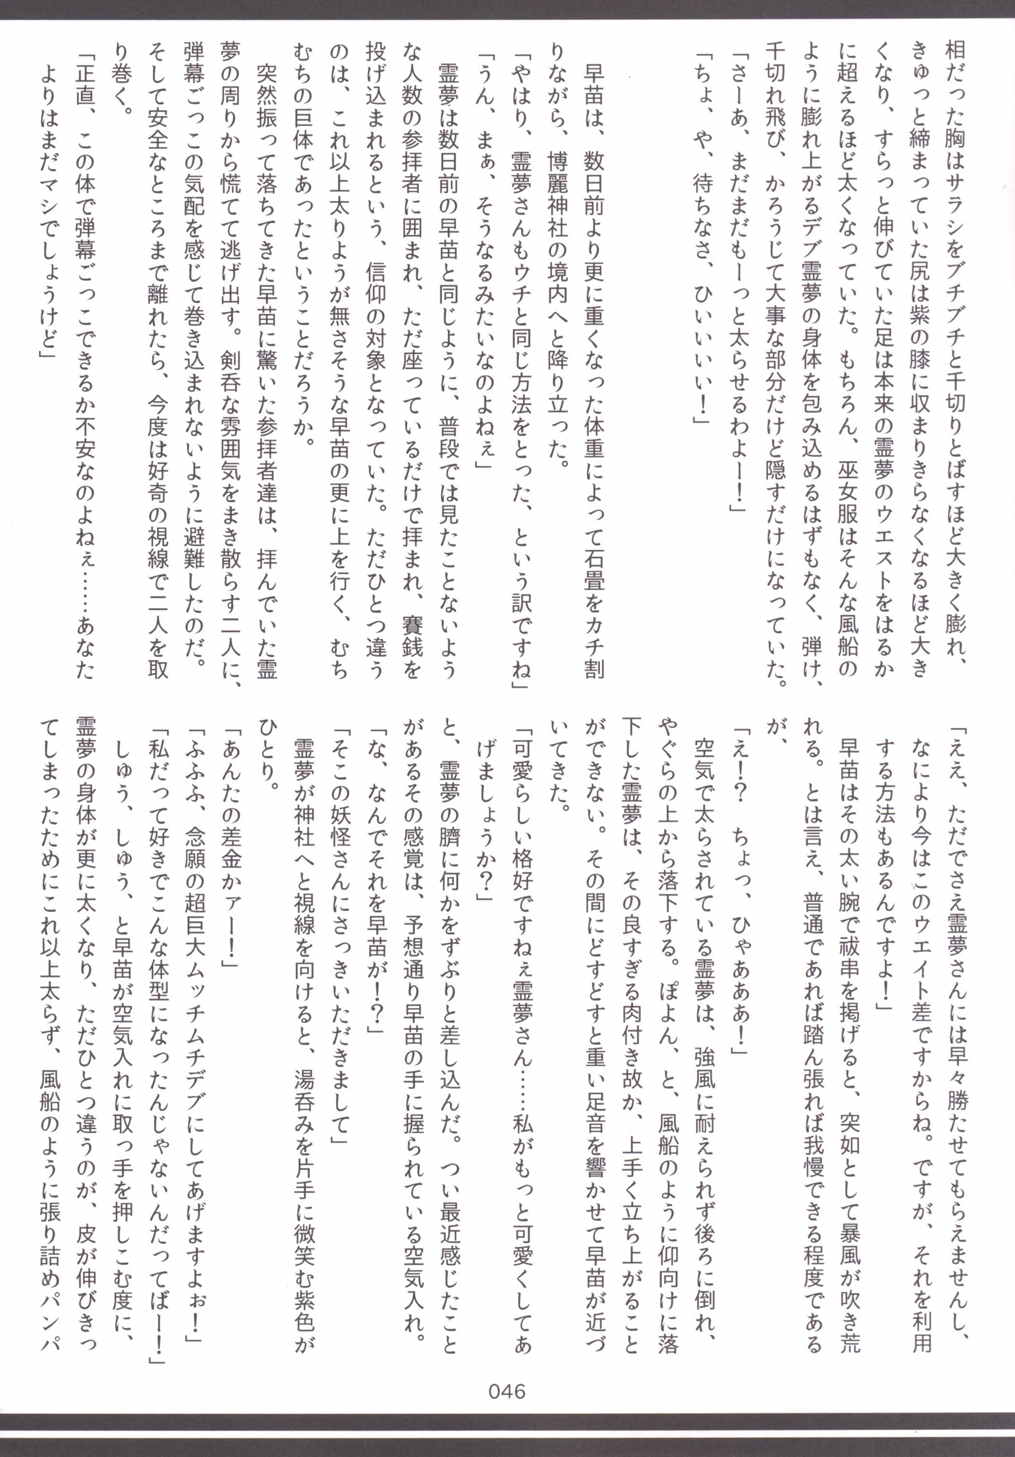 相だった胸はサラシをブチブチと千切りとばすほど大きく膨れ、
きゅっと締まっていた尻は紫の膝に収まりきらなくなるほど大き
くなり、すらっと伸びていた足は本来の霊夢のウエストをはるか
に超えるほど太くなっていた。もちろん、巫女服はそんな風船の
ように膨れ上がるデブ霊夢の身体を包み込めるはずもなく、弾け、
千切れ飛び、かろうじて大事な部分だけど隠すだけになっていた。
「さーあ、まだまだもーっと太らせるわよー！」
「ちょ、や、待ちなさ、ひいいいい！」
早苗は、数日前より更に重くなった体重によって石畳をカチ割
りながら、博麗神社の境内へと降り立った。
「やはり、霊夢さんもウチと同じ方法をとった、という訳ですね」
「うん、まぁ、そうなるみたいなのよねぇ」
霊夢は数日前の早苗と同じように、普段では見たことないよう
な人数の参拝者に囲まれ、ただ座っているだけで拝まれ、賽銭を
投げ込まれるという、信仰の対象となっていた。ただひとつ違う
のは、これ以上太りようが無さそうな早苗の更に上を行く、むち
むちの巨体であったということだろうか。
突然振って落ちてきた早苗に驚いた参拝者達は、拝んでいた霊
夢の周りから慌てて逃げ出す。剣呑な雰囲気をまき散らす二人に、
弾幕ごっこの気配を感じて巻き込まれないように避難したのだ。
そして安全なところまで離れたら、今度は好奇の視線で二人を取
り巻く。
「正直、この体で弾幕ごっこできるか不安なのよねぇ……あなた
よりはまだマシでしょうけど」
「ええ、ただでさえ霊夢さんには早々勝たせてもらえませんし、
なにより今はこのウエイト差ですからね。ですが、それを利用
する方法もあるんですよ！」
早苗はその太い腕で祓串を掲げると、突如として暴風が吹き荒
れる。とは言え、普通であれば踏ん張れば我慢できる程度である
が、
「え！？　ちょっ、ひゃあああ！」
空気で太らされている霊夢は、強風に耐えられず後ろに倒れ、
やぐらの上から落下する。ぽよん、と、風船のように仰向けに落
下した霊夢は、その良すぎる肉付き故か、上手く立ち上がること
ができない。その間にどすどすと重い足音を響かせて早苗が近づ
いてきた。
「可愛らしい格好ですねぇ霊夢さん……私がもっと可愛くしてあ
げましょうか？」
と、霊夢の臍に何かをずぶりと差し込んだ。つい最近感じたこと
があるその感覚は、予想通り早苗の手に握られている空気入れ。
「な、なんでそれを早苗が！？」
「そこの妖怪さんにさっきいただきまして」
霊夢が神社へと視線を向けると、湯呑みを片手に微笑む紫色が
ひとり。
「あんたの差金かァー！」
「ふふふ、念願の超巨大ムッチムチデブにしてあげますよぉ！」
「私だって好きでこんな体型になったんじゃないんだってばー！」
しゅう、しゅう、と早苗が空気入れに取っ手を押しこむ度に、
霊夢の身体が更に太くなり、ただひとつ違うのが、皮が伸びきっ
てしまったためにこれ以上太らず、風船のように張り詰めパンパ
046